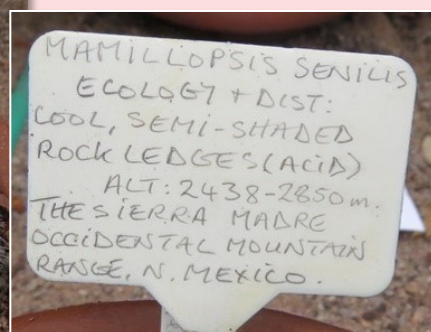 MAMILLOPSIS SENILIS
ECOLOGY + DIST:
COOL, SEMI-SHADED
ROCK LEDGES (ACID)
ALT: 2438-2850m.
THE SIERRA MADRE
OCCIDENTAL MOUNTAIN
RANGE, N. MEXICO.